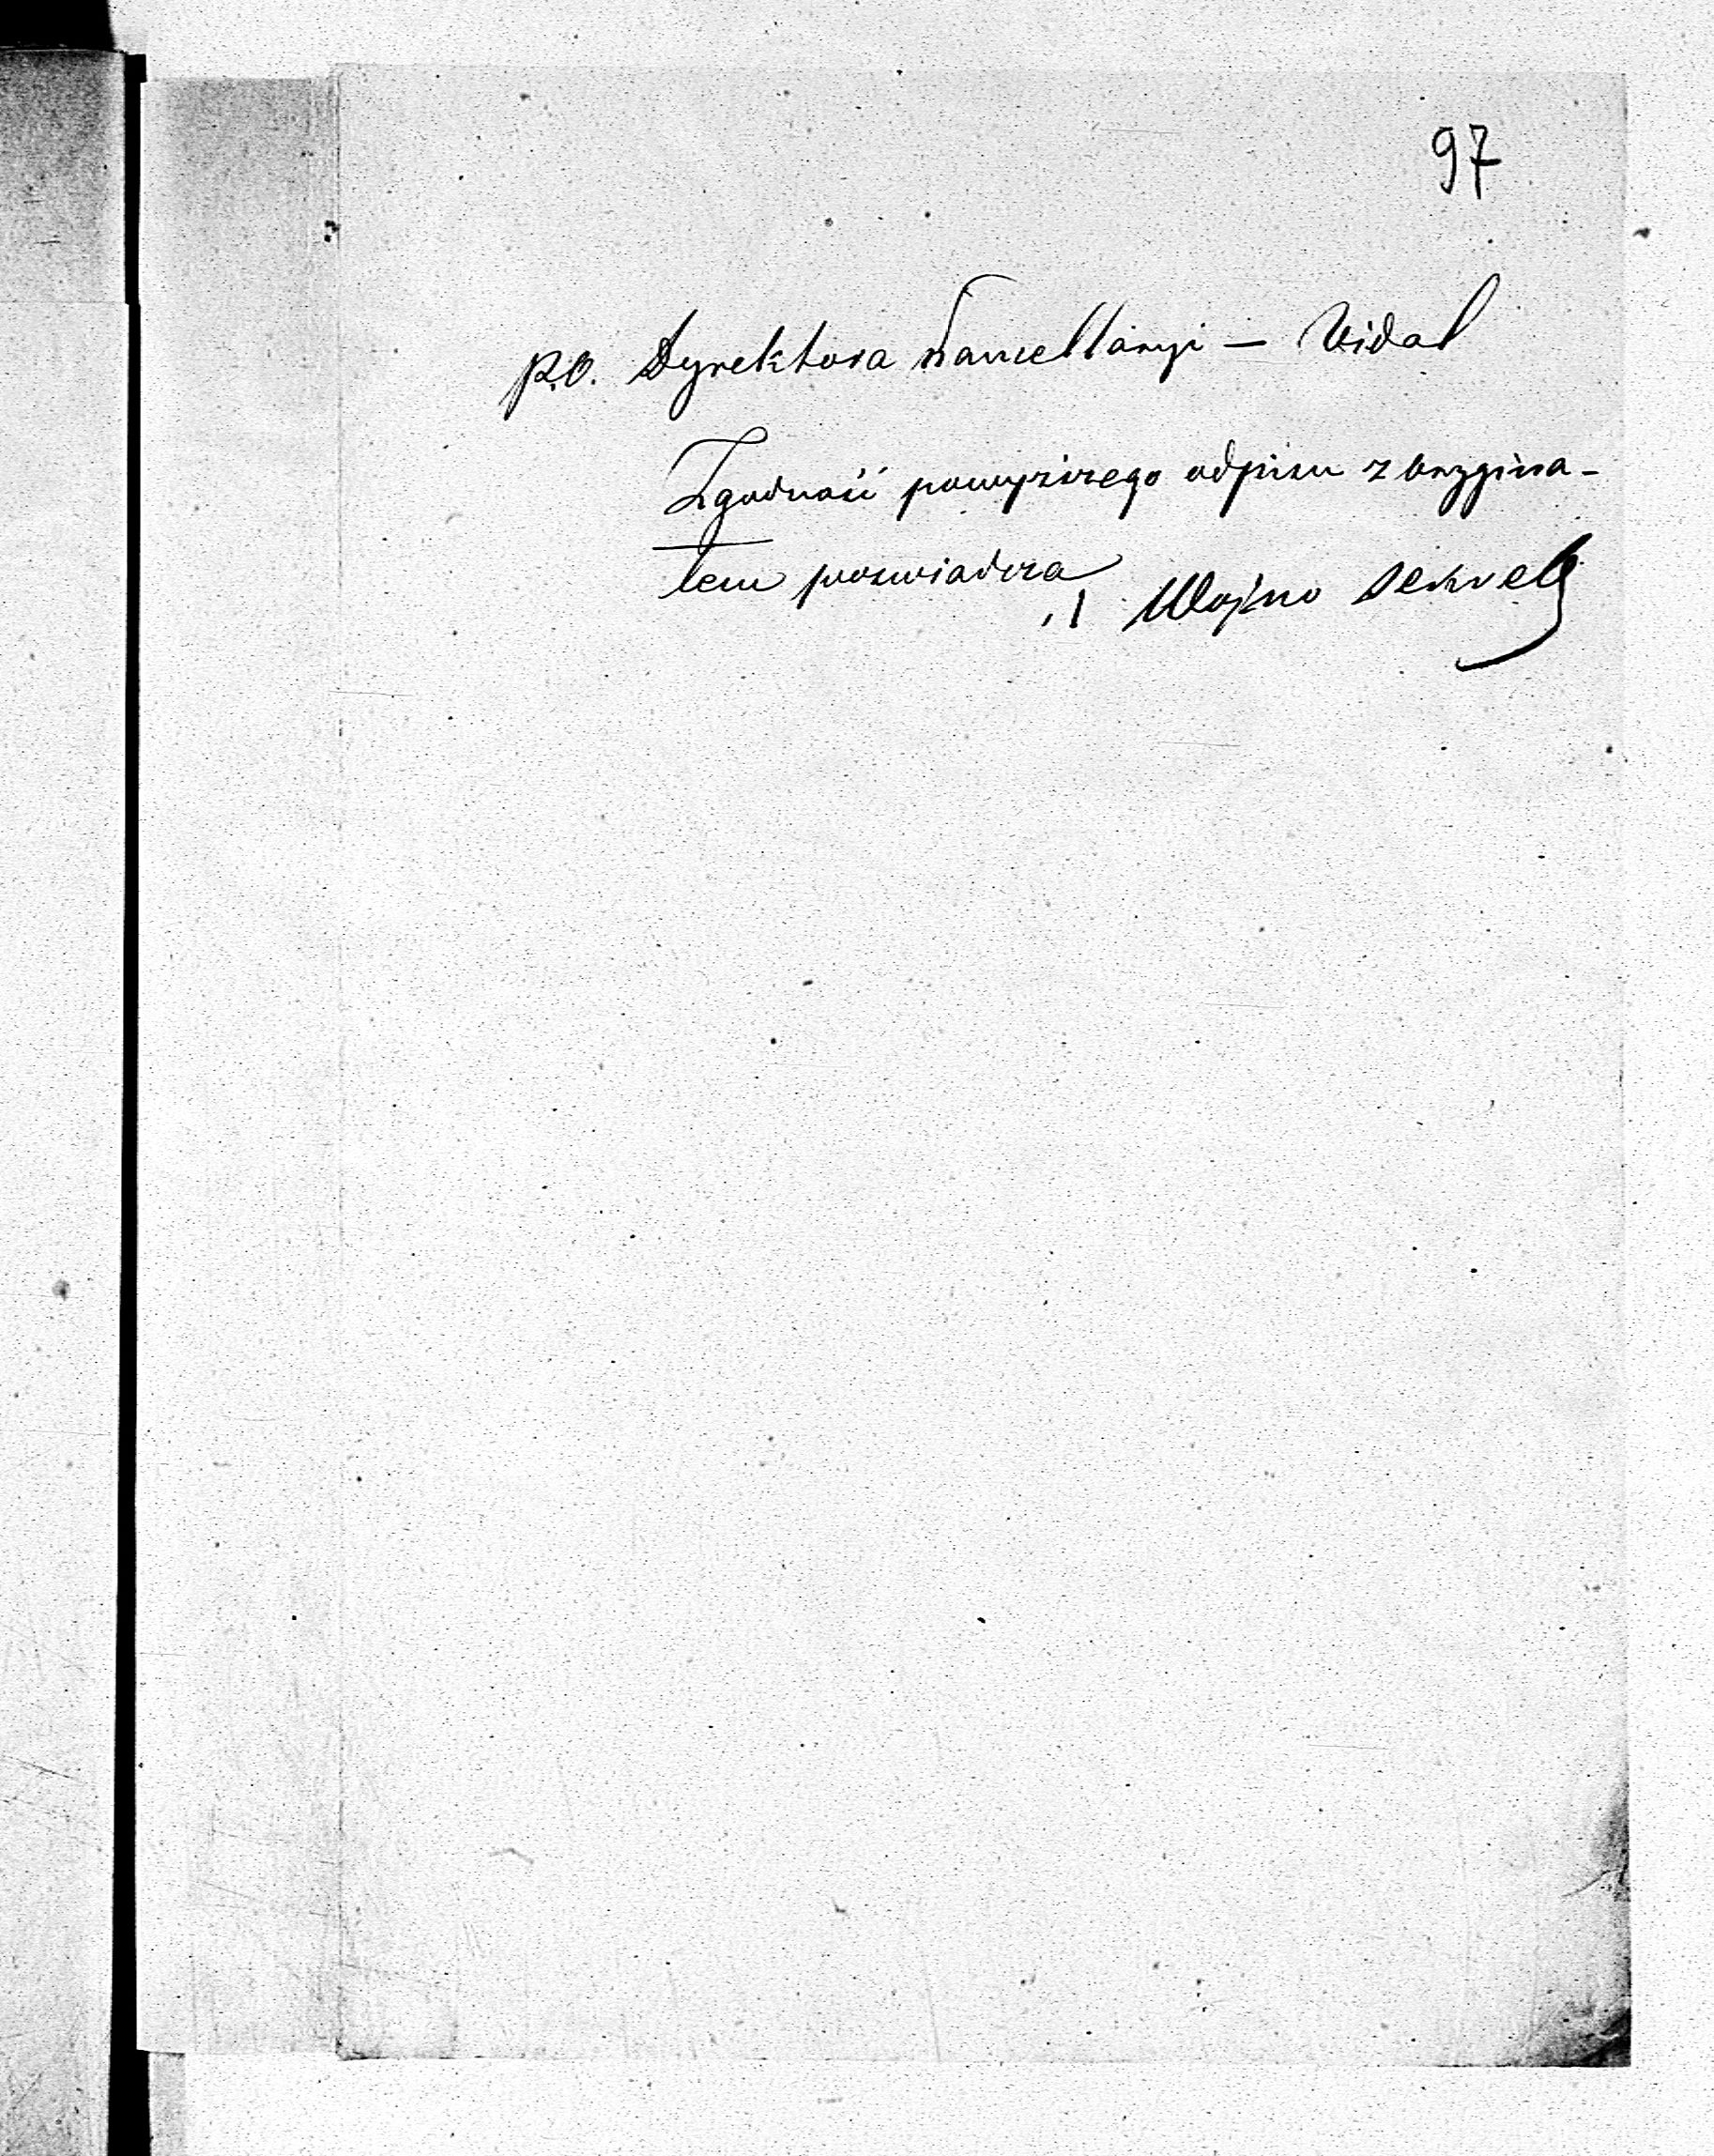 97
p.o. Dyrektora Kancellaryi – Vidal
Zgodność powyższego odpisu z orygina-
łem poświadcza
Wojno Sekret